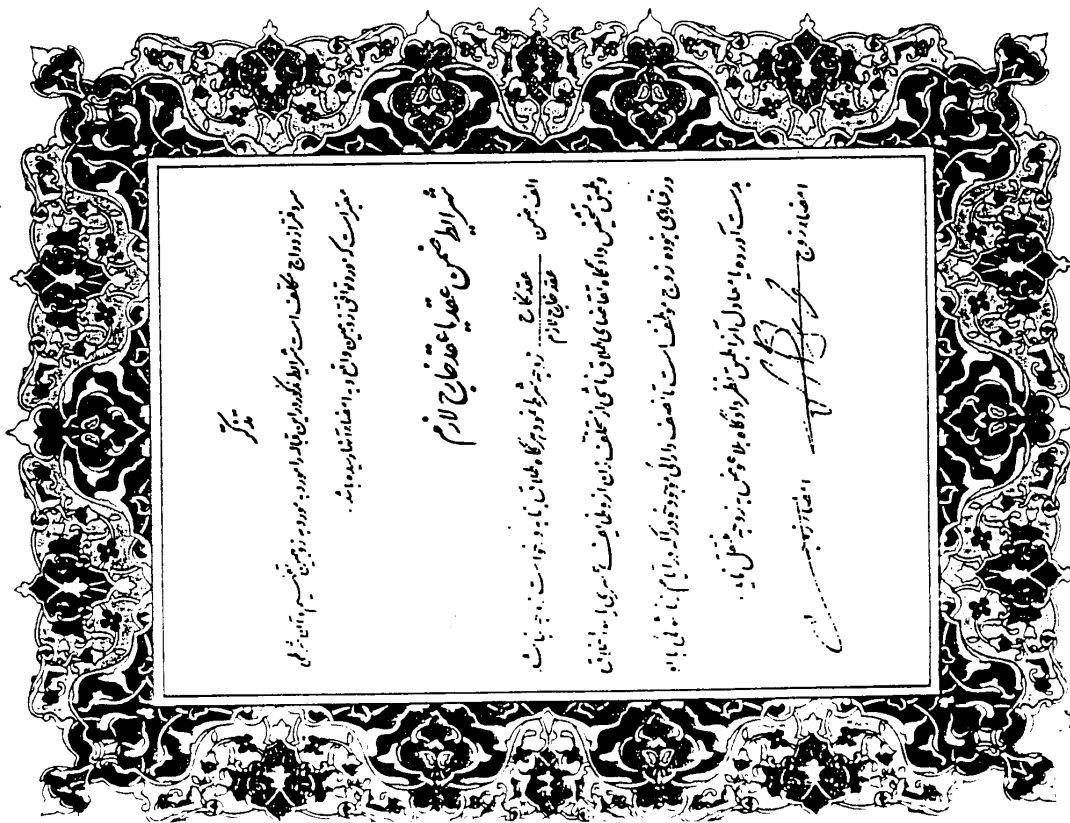 تذکر
سردفتر ازدواج مکلف است شرایط مذکور در این قباله را مورد به مورد به زوجین تفهیم و آن شرطی
معتبر است که مورد توافق زوجین واقع و به امضاء آنها رسیده باشد.
شرایط ضمن عقد یا عقد خارج لازم
الف- ضمن عقد نکاح / عقد خارج لازم زوجه شرط نمود هرگاه طلاق بنا به درخواست زوجه نباشد
و طبق تشخیص دادگاه تقاضای طلاق ناشی از تخلف زن از وظایف همسری یا سوء اخلاق
و رفتار وی نبوده زوج موظف است تا نصف دارائی موجود خود را که در ایام زناشوئی با او
بدست آورده یا معادل آنرا طبق نظر دادگاه بلاعوض به زوجه منتقل نماید.
امضاء زوج امضاء زوجه